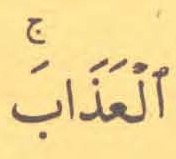 ٱلْعَذَابَۚ